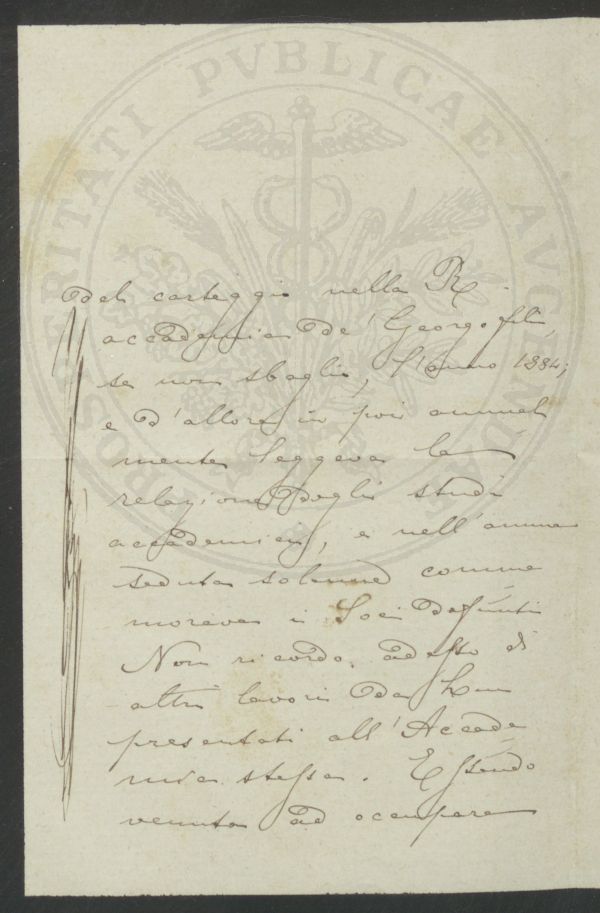 PROSPERITATI PVBLICAE AVGENDAE
del carteggio nella R.
accademia de' Georgofili,
se non sbaglio, l'anno 1884;
e d'allora in poi annual
mente leggeva la
relazione degli studi
accademici, e nell'annua
seduta solenne comme
morava i Soci defunti
Non ricordo adesso di
altri lavori da Lui
presentati all'Accade
mia stessa. Essendo
venuto ad occupare